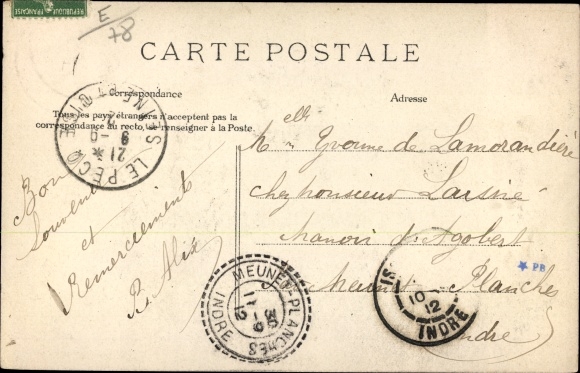 RÉPUBLIQUE FRANÇAISE
E/78
CARTE POSTALE
Correspondance
Tous les pays étrangers n'acceptent pas la
correspondance au recto, se renseigner à la Poste.
Adresse
LE PECQ
SEINE
21 *
9 - 9
Bon
Souvenir
et
Remerciements
R. Alix
Melle Yvonne de Lamorandière
chez Monsieur
Manoir d'Agobert
Meunet-Planches
Indre
MEUNET-PLANCHES
INDRE
IS
10
12
INDRE
PB